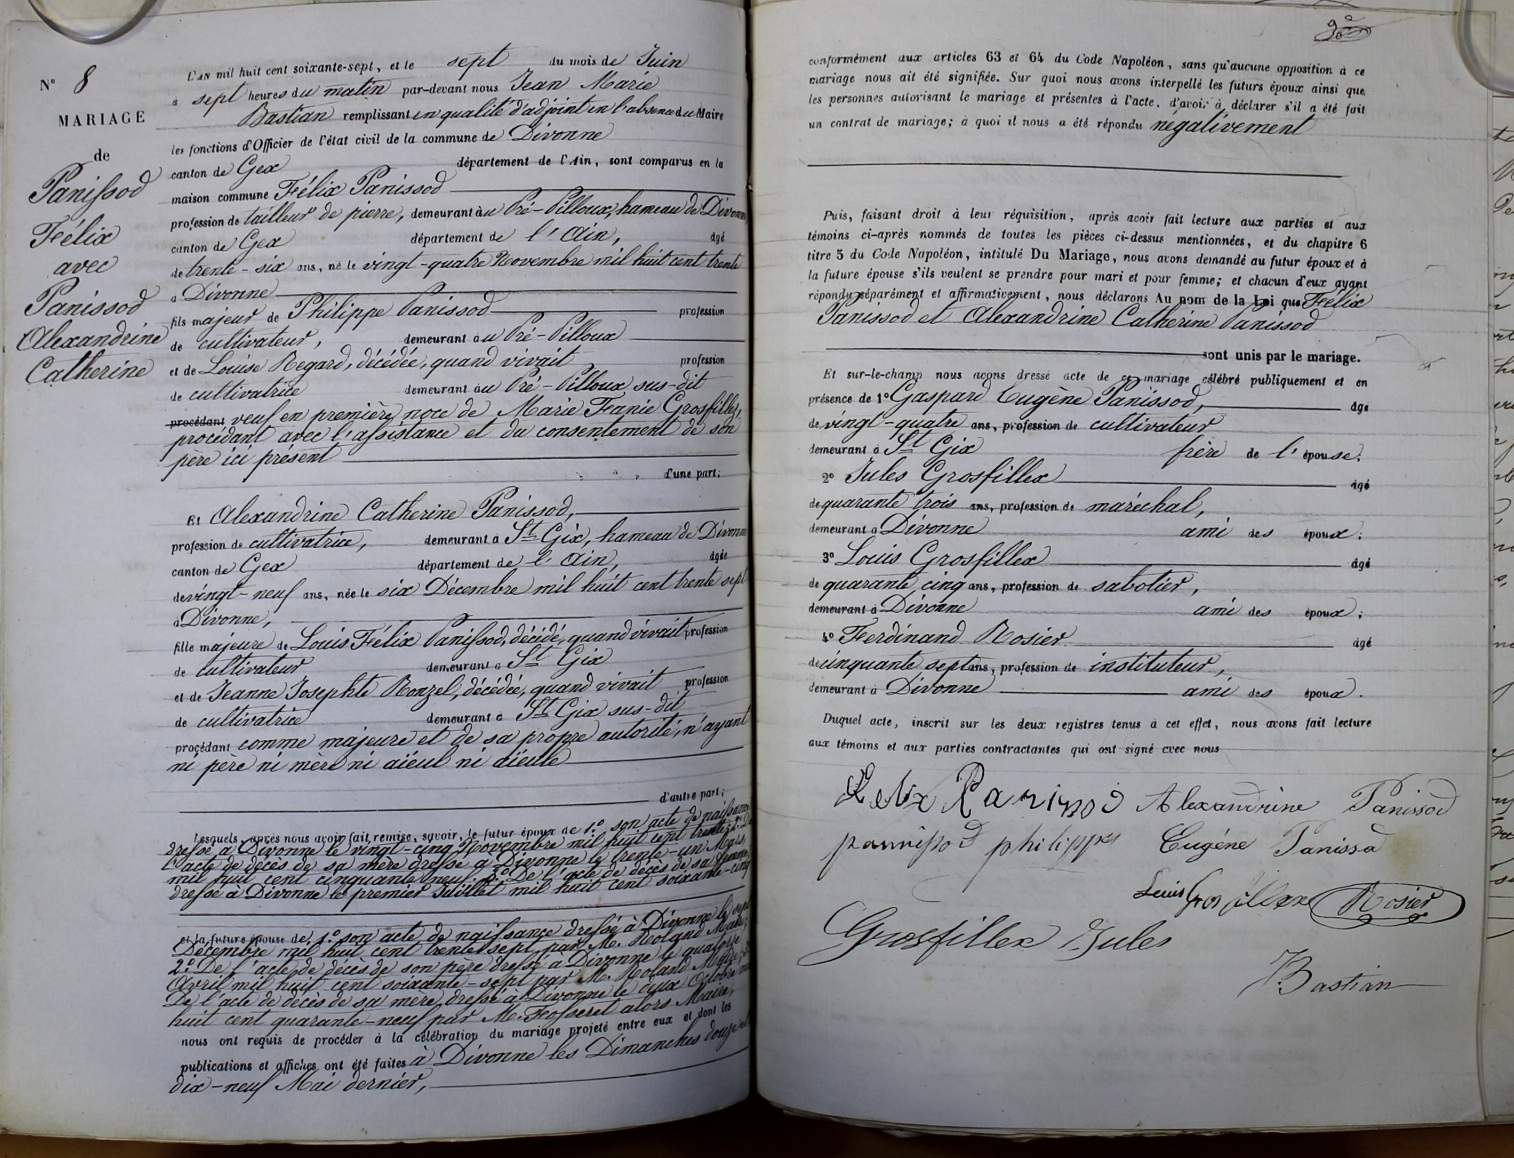 N° 8
MARIAGE
de
Panissod
Félix
avec
Panissod
Alexandrine
Catherine
L'AN mil huit cent soixante-sept, et le sept du mois de Juin
à sept heures du matin par-devant nous Jean Marie
Bastian remplissant en qualité d'adjoint en l'absence du Maire
les fonctions d'Officier de l'état civil de la commune de Divonne
canton de Gex département de l'Ain, sont comparus en la
maison commune Félix Panissod
profession de tailleur de pierre, demeurant au Pré-Pilloux, hameau de Divonne
canton de Gex département de l'Ain, âgé
de trente-six ans, né le vingt-quatre Novembre mil huit cent trente
à Divonne
fils majeur de Philippe Panissod profession
de cultivateur, demeurant au Pré-Pilloux
et de Louise Regard, décédée, quand vivait profession
de cultivatrice demeurant au Pré-Pilloux sus-dit
procédant veuf en première noce de Marie Franie Grosfillex,
procédant avec l'assistance et du consentement de son
père ici présent
d'une part;
Et Alexandrine Catherine Panissod,
profession de cultivatrice, demeurant à St Gix, hameau de Divonne
canton de Gex département de l'Ain, âgée
de vingt-neuf ans, née le six Décembre mil huit cent trente sept
à Divonne,
fille majeure de Louis Félix Panissod, décédé, quand vivait profession
de cultivateur demeurant à St Gix
et de Jeanne Josephte Ronzel, décédée, quand vivait profession
de cultivatrice demeurant à St Gix sus-dit
procédant comme majeure et de sa propre autorité, n'ayant
ni père ni mère ni aïeul ni aïeule
d'autre part;
Lesquels, après nous avoir fait remise, savoir, le futur époux de 1° son acte de naissance
dressé à Divonne le vingt-cinq Novembre mil huit cent trente; 2° De
l'acte de décès de sa mère dressé à Divonne le trente-un Mars
mil huit cent cinquante neuf. 3° De l'acte de décès de sa femme
dressé à Divonne le premier Juillet mil huit cent soixante-cinq
et la future épouse de 1° son acte de naissance dressé à Divonne le sept
Décembre mil huit cent trente sept, par M. Roland Maire;
2° De l'acte de décès de son père dressé à Divonne le quatorze
Avril mil huit cent soixante-sept par M. Roland Maire;
De l'acte de décès de sa mère, dressé à Divonne le deux Octobre mil
huit cent quarante-neuf par M. Fosseret alors Maire,
nous ont requis de procéder à la célébration du mariage projeté entre eux et dont les
publications et affiches ont été faites à Divonne les Dimanches douze et
dix-neuf Mai dernier,
conformément aux articles 63 et 64 du Code Napoléon, sans qu'aucune opposition à ce
mariage nous ait été signifiée. Sur quoi nous avons interpellé les futurs époux ainsi que
les personnes autorisant le mariage et présentes à l'acte, d'avoir à déclarer s'il a été fait
un contrat de mariage; à quoi il nous a été répondu négativement
Puis, faisant droit à leur réquisition, après avoir fait lecture aux parties et aux
témoins ci-après nommés de toutes les pièces ci-dessus mentionnées, et du chapitre 6
titre 5 du Code Napoléon, intitulé Du Mariage, nous avons demandé au futur époux et à
la future épouse s'ils veulent se prendre pour mari et pour femme; et chacun d'eux ayant
répondu séparément et affirmativement, nous déclarons Au nom de la Loi que Félix
Panissod et Alexandrine Catherine Panissod
sont unis par le mariage.
Et sur-le-champ nous avons dressé acte de ce mariage célébré publiquement et en
présence de 1° Gaspard Eugène Panissod, âgé
de vingt-quatre ans, profession de cultivateur
demeurant à St Gix frère de l'épouse;
2° Jules Grosfillex âgé
de quarante trois ans, profession de maréchal,
demeurant à Divonne ami des époux;
3° Louis Grosfillex âgé
de quarante cinq ans, profession de sabotier,
demeurant à Divonne ami des époux;
4° Ferdinand Rosier âgé
de cinquante sept ans, profession de instituteur,
demeurant à Divonne ami des époux.
Duquel acte, inscrit sur les deux registres tenus à cet effet, nous avons fait lecture
aux témoins et aux parties contractantes qui ont signé avec nous
Felix Panissod Alexandrine Panissod
pannissod philippe Eugéne Panissod
Louis Grosfillex Rosier
Grosfillex Jules
JBastian